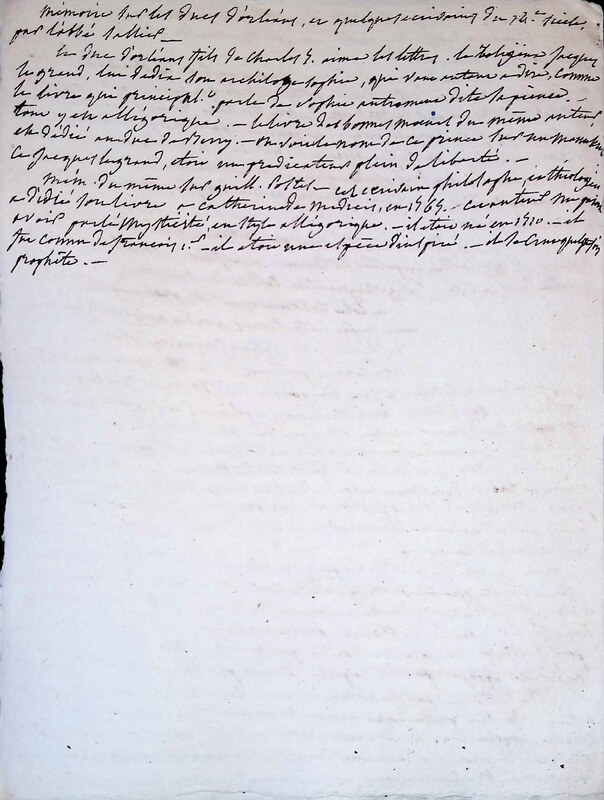 mémoire sur les ducs d'orléans, et quelques écrivains du siècle,
par l'abbé Sallier —
le duc d'orléans fils de Charles 5. aima les lettres. le religieux jacques
le grand, lui dédia son archiloge sophie, qui vaut autant a dire, comme
le livre qui principal.t parle de sophie autrement dite sapience. —
tout y est allégorique. — le livre des bonnes moeurs du même auteur
est dédié au duc de Berry. — on voit le nom de ce prince sur un
ce jacques legrand, etoit un prédicateur plein de liberté. —
mém. du même sur guill. Postel — cet écrivain philosophe, et théologien
a dédié son livre a catherine de Medicis, en
avoir parlé en style allégorique. — il etoit né en — il
fut connu de françois 1.er — il etoit une espèce d'inspiré. —
prophète. —